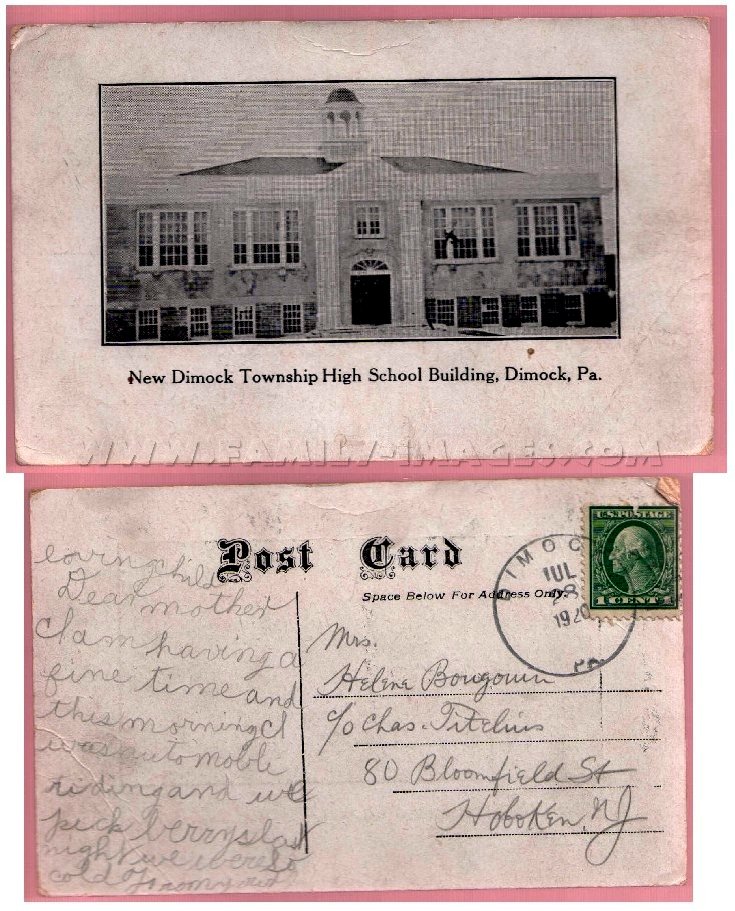 New Dimock Township High School Building, Dimock, Pa.
WWW.FAMILY-IMAGES.COM
Post Card
Space Below For Address Only.
U.S. POSTAGE
1 CENT 1
IMOC
JUL
28
1920
PA
Dear mother
I am having a
fine time and
this morning I
was automobile
riding and we
pick berrys last
night we were so
cold
child
Mrs.
Helene Bougouin
c/o Chas. Titelius
80 Bloomfield St
Hoboken, NJ